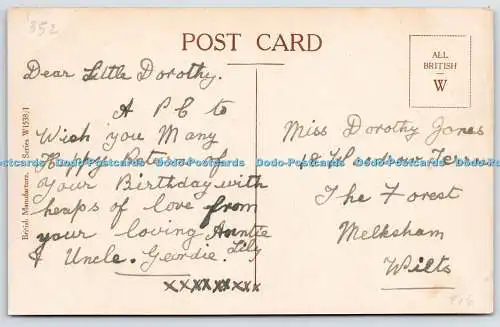 352
POST CARD
ALL
BRITISH
W
Dear Little Dorothy.
A P C to
Wish you Many
Happy Returns of
Your Birthday with
heaps of love from
your loving Auntie
Lily
& Uncle. Geordie.
xxxxxxxxx
British Manufacture. Series W1538/1
Miss Dorothy Jones
The Forest
Melksham
Wilts
Dodo-Postcards Dodo-Postcards Dodo-Postcards Dodo-Postcards Dodo-Postcards